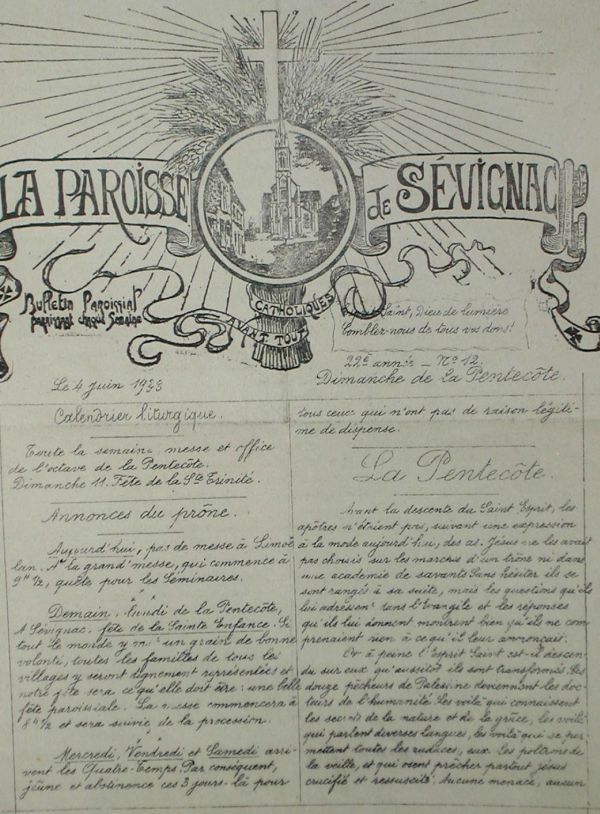 LA PAROISSE de SÉVIGNAC
Bulletin Paroissial
paraissant chaque Semaine
CATHOLIQUES
AVANT TOUT
Saint, Dieu de lumière
Comblez-nous de tous vos dons!
Le 4 Juin 1933
22e année - No 12.
Dimanche de la Pentecôte.
Calendrier liturgique.
Toute la semaine messe et office
de l'octave de la Pentecôte.
Dimanche 11. Fête de la Ste Trinité.
Annonces du prône.
Aujourd'hui, pas de messe à Limoë
lan. A la grand'messe, qui commence à
9h 1/2, quête pour les Séminaires.
Demain, lundi de la Pentecôte,
A Sévignac, fête de la Sainte Enfance. Si
tout le monde y met un grain de bonne
volonté, toutes les familles de tous les
villages y seront dignement représentées et
notre fête sera ce qu'elle doit être: une belle
fête paroissiale. La messe commencera à
8h 1/2 et sera suivie de la procession.
Mercredi, Vendredi et Samedi arri-
vent les Quatre-Temps. Par conséquent,
jeûne et abstinence ces 3 jours-là pour
tous ceux qui n'ont pas de raison légiti-
me de dispense.
La Pentecôte.
Avant la descente du Saint Esprit, les
apôtres n'étaient pas, suivant une expression
à la mode aujourd'hui, des as. Jésus ne les avait
pas choisis sur les marches d'un trône ni dans
une académie de savants. Sans hésiter ils se
sont rangés à sa suite, mais les questions qu'ils
lui adressent dans l'Evangile et les réponses
qu'ils lui donnent montrent bien qu'ils ne com
prenaient rien à ce qu'il leur annonçait.
Or à peine l'Esprit Saint est-il descen-
du sur eux qu'aussitôt ils sont transformés. Les
douze pêcheurs de Palestine deviennent les doc-
teurs de l'humanité. Les voilà qui connaissent
les secrets de la nature et de la grâce, les voilà
qui parlent diverses langues, les voilà qui se per-
mettent toutes les audaces, eux les poltrons de
la veille, et qui osent prêcher partout Jésus
crucifié et ressuscité. Aucune menace, aucun